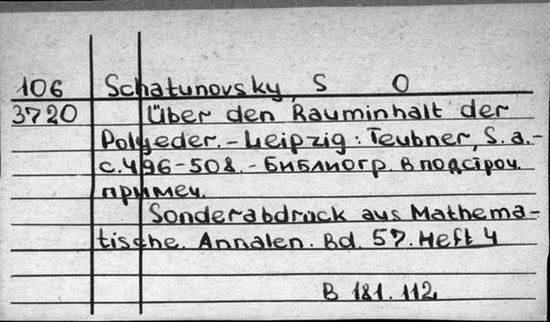 106 Schatunovsky, S O
3720 Über den Rauminhalt der
Polyeder. - Leipzig: Teubner, S. a. -
с. 496-508. - Библиогр. в подстроч.
примеч.
Sonderabdruck aus Mathema-
tische. Annalen. Bd. 57. Heft 4
B 181.112